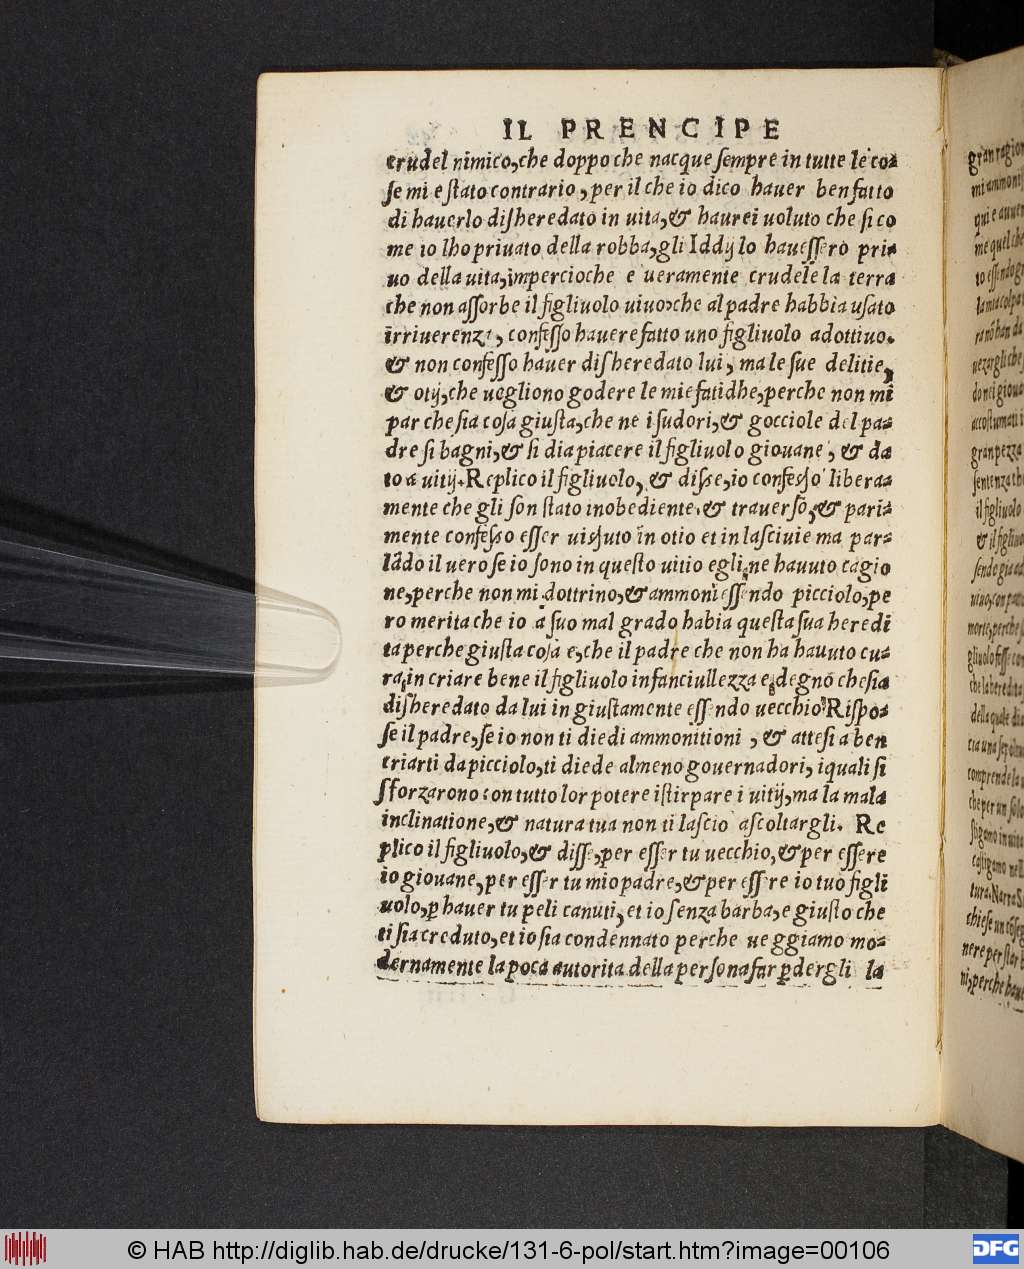 IL PRENCIPE
crudel nimico, che doppo che nacque ſempre in tutte le co⸗
ſe mi e ſtato contrario, per il che io dico hauer ben fatto
di hauerlo diſheredato in uita, & haurei uoluto che ſi co
me io lho priuato della robba, gli Iddij lo haueſſero pri⸗
uo della uita, impercioche e ueramente crudele la terra
che non aſſorbe il figliuolo uiuo, che al padre habbia uſato
irriuerenza, confeſſo hauere fatto uno figliuolo adottiuo.
& non confeſſo hauer diſheredato lui, ma le ſue delitie,
& otij, che uogliono godere le mie fatidhe, perche non mi
par che ſia coſa giuſta, che ne i ſudori, & gocciole del pa⸗
dre ſi bagni, & ſi dia piacere il figliuolo giouane, & da
to a uitij. Replico il figliuolo, & diſſe, io confeſſo libera⸗
mente che gli ſon ſtato inobediente, & trauerſo, & pari⸗
mente confeſſo eſſer uiſſuto in otio et in laſciuie ma par⸗
lādo il uero ſe io ſono in queſto uitio egli, ne hauuto cagio
ne, perche non mi dottrino, & ammoni eſſendo picciolo, pe
ro merita che io a ſuo mal grado habia queſta ſua heredi
ta perche giuſta coſa e, che il padre che non ha hauuto cu⸗
ra, in criare bene il figliuolo infanciullezza e, degno che ſia
diſheredato da lui in giuſtamente eſſendo uecchio? Riſpo⸗
ſe il padre, ſe io non ti diedi ammonitioni, & atteſi a ben
criarti da picciolo, ti diede almeno gouernadori, i quali ſi
sforzarono con tutto lor potere iſtirpare i uitij, ma la mala
inclinatione, & natura tua non ti laſcio aſcoltargli. Re
plico il figliuolo, & diſſe, per eſſer tu uecchio, & per eſſere
io giouane, per eſſer tu mio padre, & per eſſere io tuo figli
uolo, ꝑ hauer tu peli canuti, et io ſenza barba, e giuſto che
ti ſia creduto, et io ſia condennato perche ueggiamo mo⸗
dernamente la poca autorita della perſona far ꝑdergli la
gran ragion
mi ammoni
qui e auuen
me quel che
to eſſendo g
la mia colpa
uezargli che
do nei giou
accoſtumati i
gran pezza
ſentenza ch
il figliuolo
& il figliuo
ſendo gia
morte, perche
gliuolo foſſe con
che la heredita
della quale di
comprende la
che per un ſolo
ſtigano in uita
caſtigano nell
tura. Narra S
chieſe un cōſeg
nere per ſtar
ni, perche haue
© HAB http://diglib.hab.de/drucke/131-6-pol/start.htm?image=00106
DFG